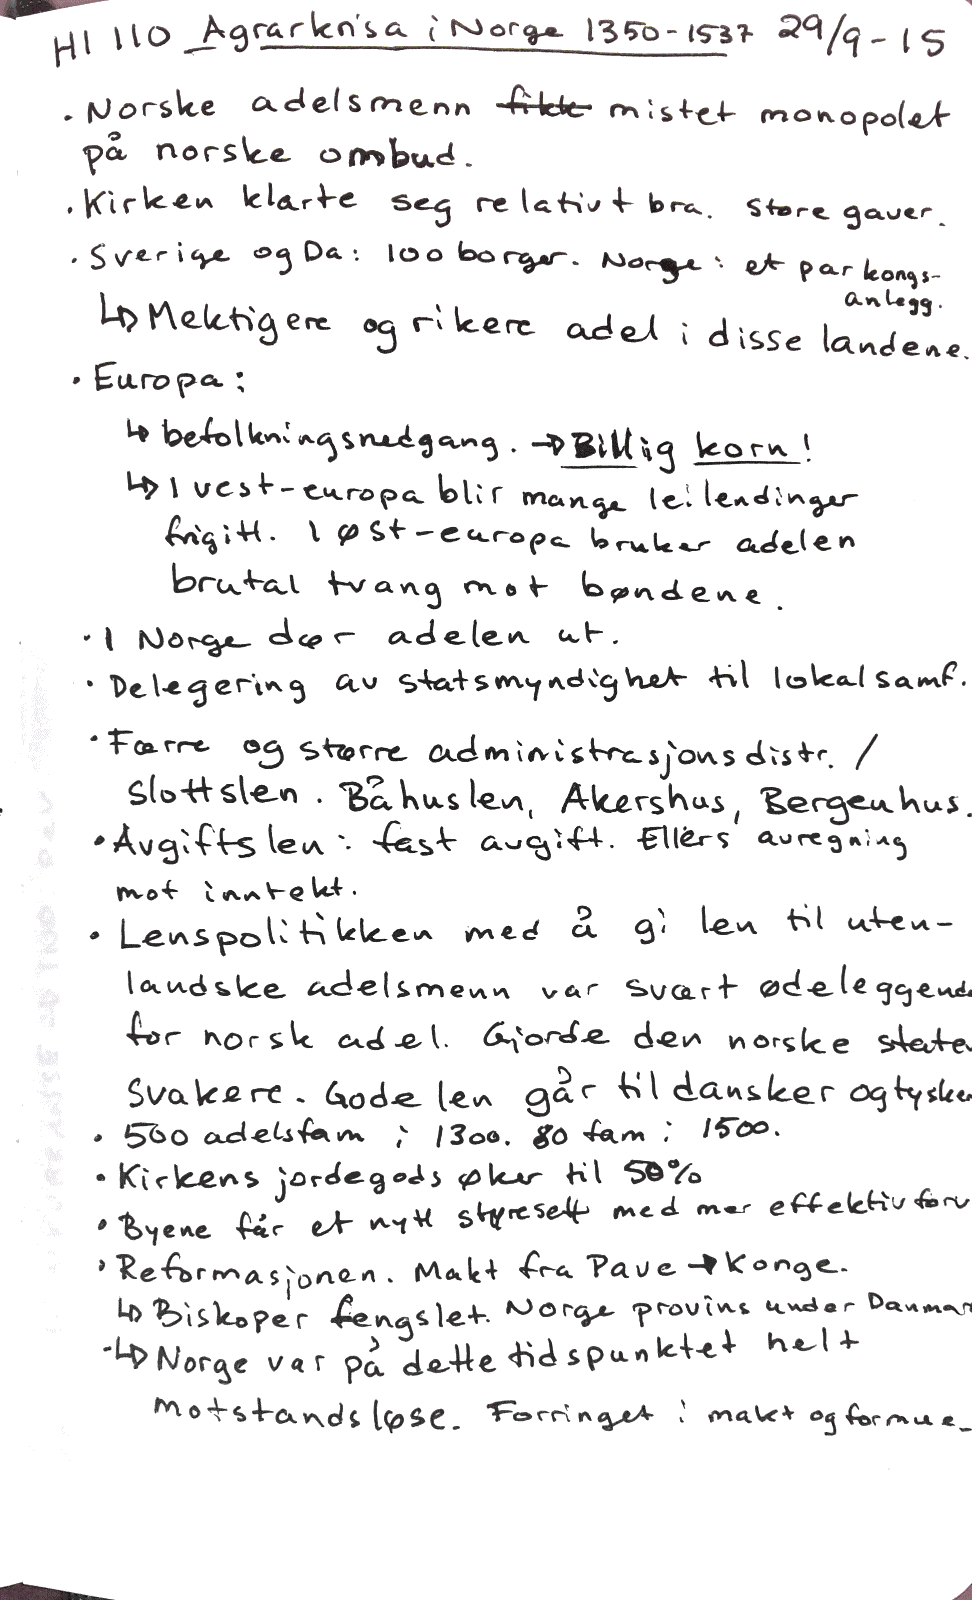 HI 110 Agrarkrisa i Norge 1350-1537 29/9-15
• Norske adelsmenn fikk mistet monopolet
på norske ombud.
• Kirken klarte seg relativt bra. Store gaver.
• Sverige og Da: 100 borger. Norge: et par kongs-
anlegg.
↳ Mektigere og rikere adel i disse landene.
• Europa:
↳ befolkningsnedgang. → Billig korn!
↳ I vest-europa blir mange leilendinger
frigitt. I øst-europa bruker adelen
brutal tvang mot bøndene.
• I Norge dør adelen ut.
• Delegering av statsmyndighet til lokalsamf.
• Færre og større administrasjonsdistr. /
Slottslen. Båhuslen, Akershus, Bergenhus.
• Avgiftslen: fast avgift. Ellers avregning
mot inntekt.
• Lenspolitikken med å gi len til uten-
landske adelsmenn var svært ødeleggende
for norsk adel. Gjorde den norske state
svakere. Gode len går til dansker og tysker
• 500 adelsfam i 1300. 80 fam i 1500.
• Kirkens jordegods øker til 50%
• Byene får et nytt styresett med mer effektiv forv
• Reformasjonen. Makt fra Pave → Konge.
↳ Biskoper fengslet. Norge provins under Danmar
↳ Norge var på dette tidspunktet helt
motstandsløse. Forringet i makt og formue.